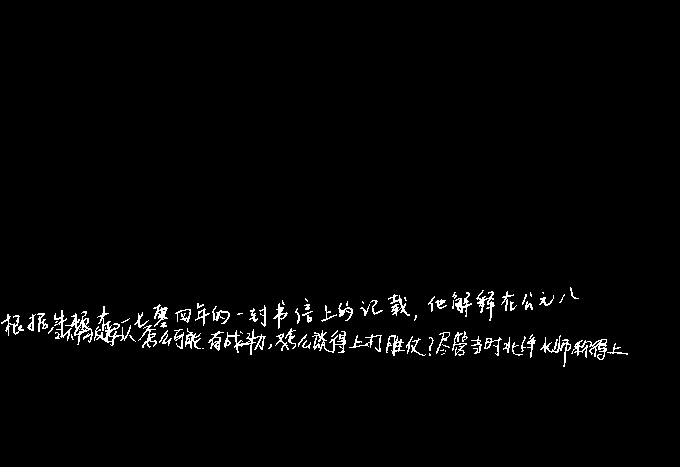 根据牛顿在一七零四年的一封书信上的记载，他解释在公元八
怎么可能有战斗力，怎么谈得上打胜仗？尽管当时北洋水师称得上